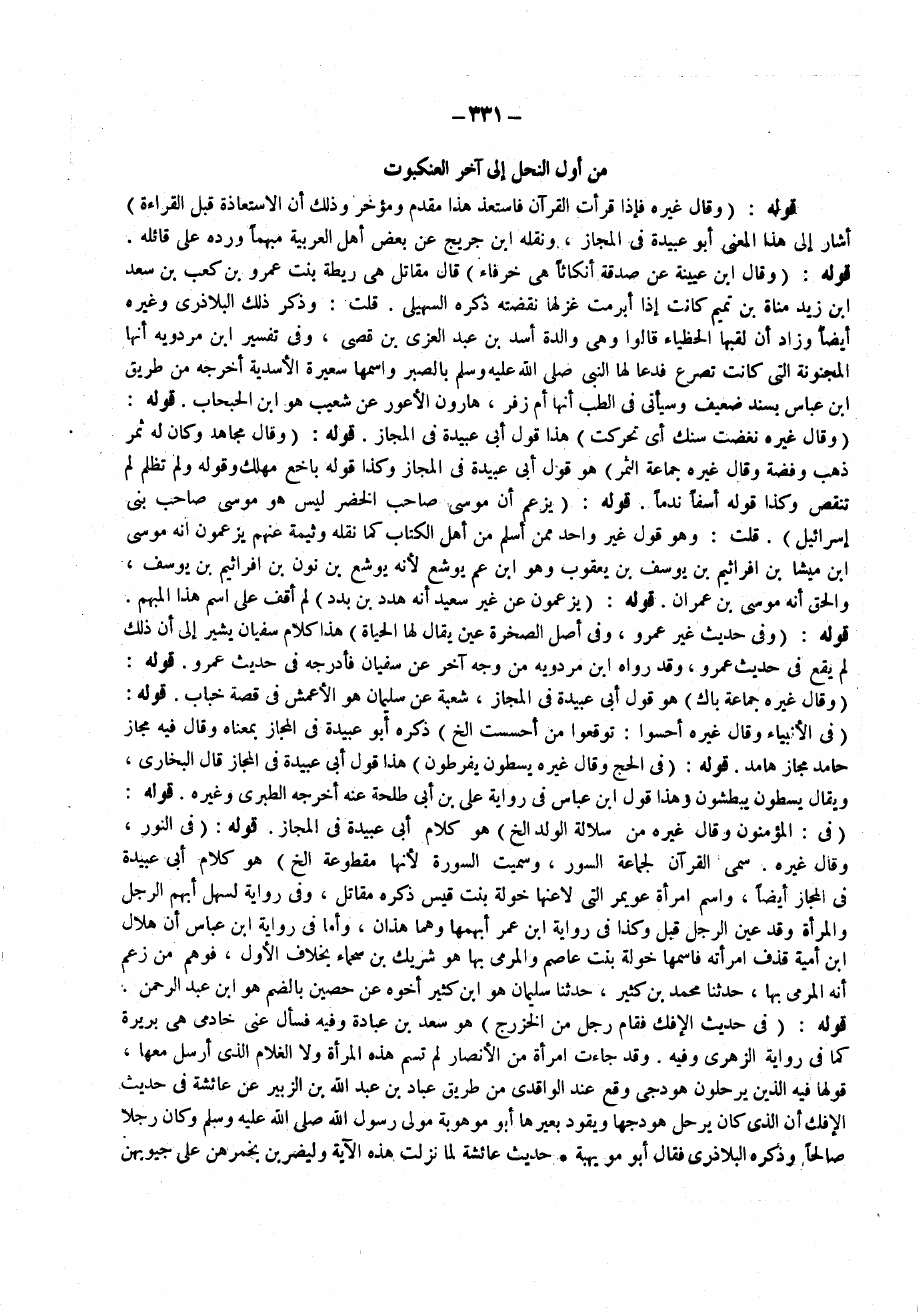 – ٣٣١ –
من أول النحل إلى آخر العنكبوت
قوله : ( وقال غيره فإذا قرأت القرآن فاستعذ هذا مقدم ومؤخر وذلك أن الاستعاذة قبل القراءة )
أشار إلى هذا المعنى أبو عبيدة فى المجاز ، ونقله ابن جريج عن بعض أهل العربية مبهماً ورده على قائله .
قوله : ( وقال ابن عيينة عن صدقة أنكاثاً هى خرقاء ) قال مقاتل هى ريطة بنت عمرو بن كعب بن سعد
ابن زيد مناة بن تميم كانت إذا أبرمت غزلها نقضته ذكره السهيلى . قلت : وذكر ذلك البلاذرى وغيره
أيضاً وزاد أن لقبها الحظياء قالوا وهى والدة أسد بن عبد العزى بن قصى ، وفى تفسير ابن مردويه أنها
المجنونة التى كانت تصرع فدعا لها النبى صلى الله عليه وسلم بالصبر واسمها سعيرة الأسدية أخرجه من طريق
ابن عباس بسند ضعيف وسيأتى فى الطب أنها أم زفر ، هارون الأعور عن شعيب هو ابن الحبحاب . قوله :
( وقال غيره نغضت سنك أى تحركت ) هذا قول أبى عبيدة فى المجاز . قوله : ( وقال مجاهد وكان له ثمر
ذهب وفضة وقال غيره جماعة الثمر ) هو قول أبى عبيدة فى المجاز وكذا قوله باخع مهلك وقوله ولم تظلم لم
تنقص وكذا قوله أسفاً ندماً . قوله : ( يزعم أن موسى صاحب الخضر ليس هو موسى صاحب بنى
إسرائيل ) . قلت : وهو قول غير واحد ممن أسلم من أهل الكتاب كما نقله وثيمة عنهم يزعمون أنه موسى
ابن ميشا بن افراثيم بن يوسف بن يعقوب وهو ابن عم يوشع لأنه يوشع بن نون بن افراثيم بن يوسف ،
والحق أنه موسى بن عمران . قوله : ( يزعمون عن غير سعيد أنه هدد بن بدد ) لم أقف على اسم هذا المبهم .
قوله : ( وفى حديث غير عمرو ، وفى أصل الصخرة عين يقال لها الحياة ) هذا كلام سفيان يشير إلى أن ذلك
لم يقع فى حديث عمرو ، وقد رواه ابن مردويه من وجه آخر عن سفيان فأدرجه فى حديث عمرو . قوله :
( وقال غيره جماعة باك ) هو قول أبى عبيدة فى المجاز ، شعبة عن سليمان هو الأعمش فى قصة خباب . قوله :
( فى الأنبياء وقال غيره أحسوا : توقعوا من أحسست الخ ) ذكره أبو عبيدة فى المجاز بمعناه وقال فيه مجاز
حامد مجاز هامد . قوله : ( فى الحج وقال غيره يسطون يفرطون ) هذا قول أبى عبيدة فى المجاز قال البخارى ،
ويقال يسطون يبطشون وهذا قول ابن عباس فى رواية على بن أبى طلحة عنه أخرجه الطبرى وغيره . قوله :
( فى : المؤمنون وقال غيره من سلالة الولد الخ ) هو كلام أبى عبيدة فى المجاز . قوله : ( فى النور ،
وقال غيره . سمى القرآن لجماعة السور ، وسميت السورة لأنها مقطوعة الخ ) هو كلام أبى عبيدة
فى المجاز أيضاً ، واسم امرأة عويمر التى لاعنها خولة بنت قيس ذكره مقاتل ، وفى رواية لسهل أبهم الرجل
والمرأة وقد عين الرجل قبل وكذا فى رواية ابن عمر أبهمها وهما هذان ، وأما فى رواية ابن عباس أن هلال
ابن أمية قذف امرأته فاسمها خولة بنت عاصم والمرمى بها هو شريك بن سحماء بخلاف الأول ، فوهم من زعم
أنه المرمى بها ، حدثنا محمد بن كثير ، حدثنا سليمان هو ابن كثير أخوه عن حصين بالضم هو ابن عبد الرحمن .
قوله : ( فى حديث الإفك فقام رجل من الخزرج ) هو سعد بن عبادة وفيه فسأل عنى خادمى هى بريرة
كما فى رواية الزهرى وفيه . وقد جاءت امرأة من الأنصار لم تسم هذه المرأة ولا الغلام الذى أرسل معها ،
قولها فيه الذين يرحلون هودجى وقع عند الواقدى من طريق عباد بن عبد الله بن الزبير عن عائشة فى حديث
الإفك أن الذى كان يرحل هودجها ويقود بعيرها أبو موهوبة مولى رسول الله صلى الله عليه وسلم وكان رجلا
صالحاً ، وذكره البلاذرى فقال أبو مويهبة * حديث عائشة لما نزلت هذه الآية وليضربن بخمرهن على جيوبهن